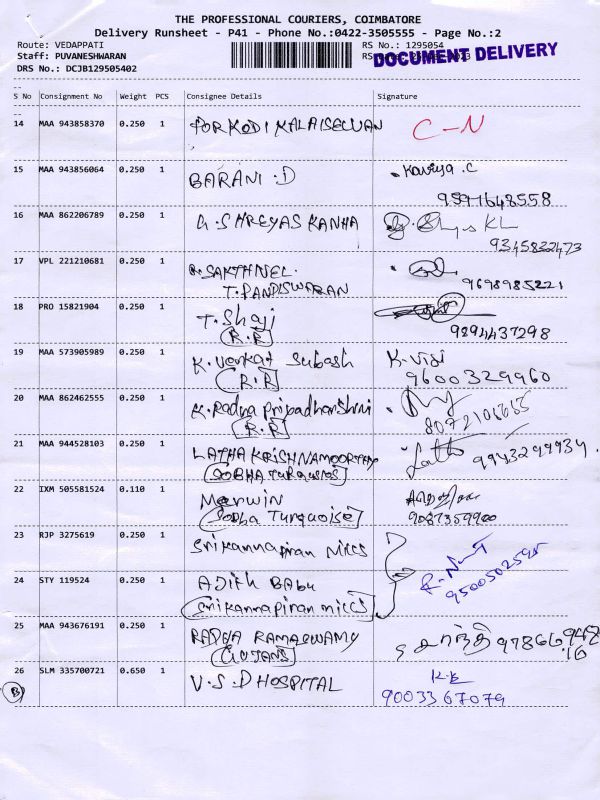 THE PROFESSIONAL COURIERS, COIMBATORE
Delivery Runsheet - P41 - Phone No.:0422-3505555 - Page No.:2
Route: VEDAPPATI RS No.: 1295054
Staff: PUVANESHWARAN DOCUMENT DELIVERY
DRS No.: DCJB129505402
S No Consignment No Weight PCS Consignee Details Signature
14 MAA 943858370 0.250 1 PORKODI KALAISELVAN C-N
15 MAA 943856064 0.250 1 BARANI.D Kaviya.C
9591648558
16 MAA 862206789 0.250 1 G.SHREYAS KANHA
9345832473
17 VPL 221210681 0.250 1 SAKTHIVEL.
T.PANDISWARAN 9698985221
18 PRO 15821904 0.250 1 T.Shaji
R.R 9894437298
19 MAA 573905989 0.250 1 K.Venkat Subash K.Viji
R.R 9600329960
20 MAA 862462555 0.250 1 K.Radha Priyadharshini
R.R 8072106655
21 MAA 944528103 0.250 1 LATHA KRISHNAMOORTHY Latha 9943299934
SOBHA Turquoise
22 IXM 505581524 0.110 1 Merwin
Sobha Turquoise 9087359900
23 RJP 3275619 0.250 1 Srikannapiran Mills
24 STY 119524 0.250 1 Adith Babu
Srikannapiran mills
25 MAA 943676191 0.250 1 RADHA RAMASWAMY சாந்தி 97866
26 SLM 335700721 0.650 1 V.S.D HOSPITAL K.K
B 9003367079